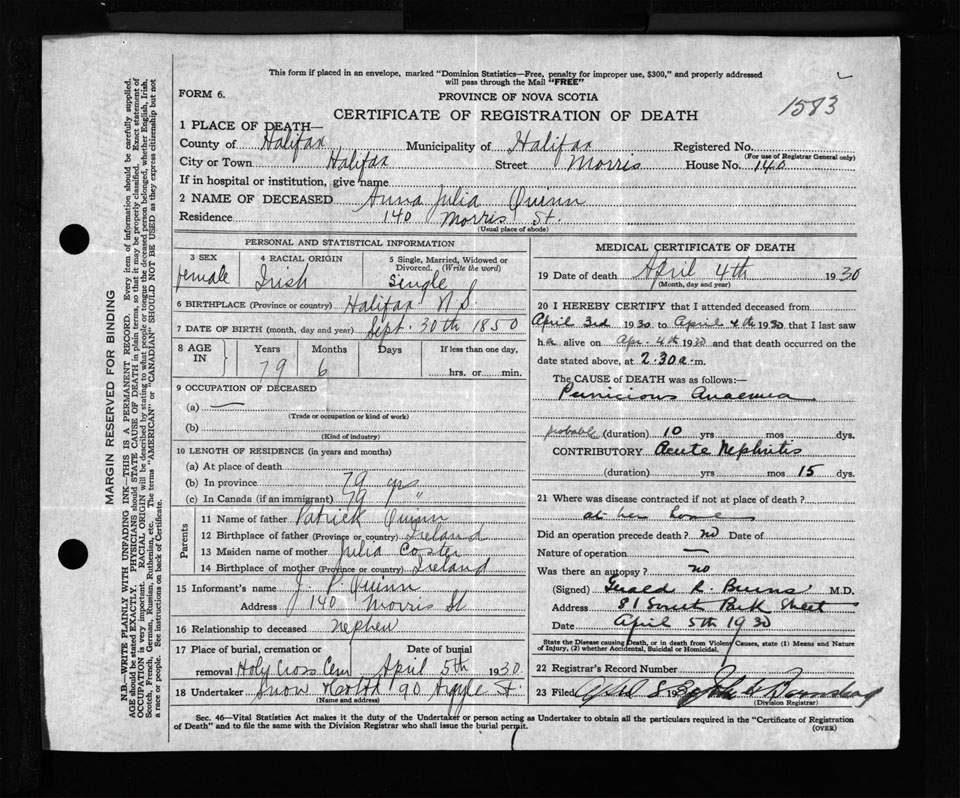 This form if placed in an envelope, marked "Dominion Statistics—Free, penalty for improper use, $300," and properly addressed
will pass through the Mail "FREE"
FORM 6.
PROVINCE OF NOVA SCOTIA
1583
CERTIFICATE OF REGISTRATION OF DEATH
1 PLACE OF DEATH—
County of Halifax Municipality of Halifax Registered No.
(For use of Registrar General only)
City or Town Halifax Street Morris House No. 140
If in hospital or institution, give name
2 NAME OF DECEASED Anna Julia Quinn
Residence 140 Morris St.
(Usual place of abode)
PERSONAL AND STATISTICAL INFORMATION
3 SEX 4 RACIAL ORIGIN 5 Single, Married, Widowed or
Divorced. (Write the word)
female Irish Single
6 BIRTHPLACE (Province or country) Halifax N S.
7 DATE OF BIRTH (month, day and year) Sept. 30th 1850
8 AGE IN Years Months Days If less than one day,
79 6 hrs. or min.
9 OCCUPATION OF DECEASED
(a) —
(Trade or occupation or kind of work)
(b)
(Kind of industry)
10 LENGTH OF RESIDENCE (in years and months)
(a) At place of death
(b) In province 79 yrs
(c) In Canada (if an immigrant) 79 "
Parents
11 Name of father Patrick Quinn
12 Birthplace of father (Province or country) Ireland
13 Maiden name of mother Julia Coster
14 Birthplace of mother (Province or country) Ireland
15 Informant's name J. P. Quinn
Address 140 Morris St
16 Relationship to deceased nephew
17 Place of burial, cremation or Date of burial
removal Holy Cross Cem April 5th 1930.
18 Undertaker Snow & Co Ltd 90 Argyle St.
(Name and address)
MEDICAL CERTIFICATE OF DEATH
19 Date of death April 4th 1930
(Month, day and year)
20 I HEREBY CERTIFY that I attended deceased from
April 3rd 1930 to April 4th 1930 that I last saw
h alive on Apr. 4th 1930 and that death occurred on the
date stated above, at 2.30 a.m.
The CAUSE OF DEATH was as follows:—
Pernicious Anaemia
probable (duration) 10 yrs mos dys.
CONTRIBUTORY Acute Nephritis
(duration) yrs mos 15 dys.
21 Where was disease contracted if not at place of death?
at her home
Did an operation precede death? no Date of
Nature of operation —
Was there an autopsy? no
(Signed) Gerald R. Burns M.D.
Address 81 Park Street
Date April 5th 1930
State the Disease causing Death, or in death from Violent Causes, state (1) Means and Nature
of Injury, (2) whether Accidental, Suicidal or Homicidal.
22 Registrar's Record Number
23 Filed April 8 193
(Division Registrar)
Sec. 46—Vital Statistics Act makes it the duty of the Undertaker or person acting as Undertaker to obtain all the particulars required in the "Certificate of Registration
of Death" and to file the same with the Division Registrar who shall issue the burial permit.
(OVER)
MARGIN RESERVED FOR BINDING
N.B.—WRITE PLAINLY WITH UNFADING INK—THIS IS A PERMANENT RECORD. Every item of information should be carefully supplied.
AGE should be stated EXACTLY. PHYSICIANS should STATE CAUSE OF DEATH in plain terms, so that it may be properly classified. Exact statement of
OCCUPATION is very important. RACIAL ORIGIN will be described by stating to what people or tongue the deceased person belonged, whether English, Irish,
Scotch, French, German, Russian, Ruthenian, etc. The terms "AMERICAN" or "CANADIAN" SHOULD NOT BE USED as they express citizenship but not
a race or people. See instructions on back of Certificate.